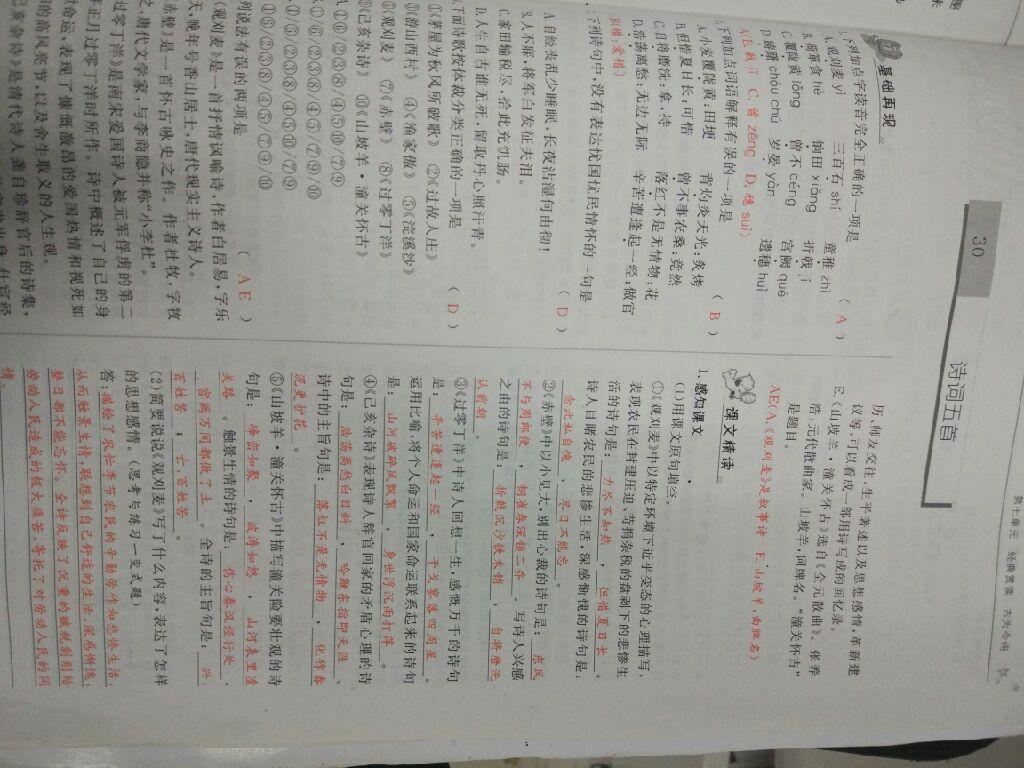 第七单元 经典赏读 古为今用
30 诗词五首
基础再现
1.下列加点字读音完全正确的一项是 ( A )
A.观刈麦 yì 三百石 shí 童稚 zhì
B.荷箪食 hè 饷田 xiǎng 折戟 jí
C.覆陇黄 lǒng 曾不 céng 宫阙 què
D.踌躇 chóu chú 岁晏 yàn 遗穗 huì
C.曾 zēng D.穗 suì)
2.下列加点词语解释有误的一项是 ( B )
A.小麦覆陇黄:田埂 背灼炎天光:炙烤
B.但惜夏日长:可惜 曾不事农桑:竟然
C.自将磨洗:拿,持 落红不是无情物:花
D.浩荡离愁:无边无际 辛苦遭逢起一经:做官
B(惜:爱惜)
3.下列诗句中,没有表达忧国忧民情怀的一句是
( D )
A.自经丧乱少睡眠,长夜沾湿何由彻!
B.人不寐,将军白发征夫泪。
C.家田输税尽,拾此充饥肠。
D.人生自古谁无死,留取丹心照汗青。
4.下面诗歌按体裁分类正确的一项是 ( D )
①《茅屋为秋风所破歌》 ②《过故人庄》
③《游山西村》 ④《渔家傲》 ⑤《浣溪沙》
⑥《观刈麦》 ⑦《赤壁》 ⑧《过零丁洋》
⑨《己亥杂诗》 ⑩《山坡羊·潼关怀古》
A.①⑥/②③⑧/④⑤⑩/⑦⑨
列说法有误的两项是 ( A E )
《观刈麦》是一首抒情讽喻诗,作者白居易,字乐
天,晚年号香山居士,唐代现实主义诗人。
赤壁》是一首怀古咏史之作。作者杜牧,字牧
之,唐代文学家,与李商隐并称“小李杜”。
过零丁洋》是南宋爱国诗人被元军俘虏的第二
年正月过零丁洋时所作。诗中概述了自己的身
世命运,表现了慷慨激昂的爱国热情和视死如
归的高风亮节,以及舍生取义的人生观。
己亥杂诗》是清代诗人龚自珍辞官后的诗集,
历、师友交往、生平著述以及思想感情,革新建
议等,可以看成一部用诗写成的回忆录。
E.《山坡羊·潼关怀古》选自《全元散曲》。张养
浩,元代散曲家。山坡羊,词牌名。“潼关怀古”
是题目。
AE(A.《观刈麦》是叙事诗 E.山坡羊,曲牌名)
课文精读
1.感知课文
(1)用课文原句填空。
①《观刈麦》中以特定环境下近乎变态的心理描写,
表现农民在封建压迫、苛捐杂税的盘剥下的悲惨生
活的诗句是: 力尽不知热 , 但惜夏日长 。
诗人目睹农民的悲惨生活,深感惭愧的诗句是:
念此私自愧 , 尽日不能忘 。
②《赤壁》中以小见大,别出心裁的诗句是: 东风
不与周郎便 , 铜雀春深锁二乔 。写诗人兴感
之由的诗句是: 折戟沉沙铁未销 , 自将磨洗
认前朝 。
③《过零丁洋》中诗人回想一生,感慨万千的诗句
是: 辛苦遭逢起一经 , 干戈寥落四周星 。
运用比喻,将个人命运和国家命运联系起来的诗句
是: 山河破碎风飘絮 , 身世浮沉雨打萍 。
④《己亥杂诗》表现诗人辞官回家的矛盾心理的诗
句是: 浩荡离愁白日斜 , 吟鞭东指即天涯 。
诗中的主旨句是: 落红不是无情物 , 化作春
泥更护花 。
⑤《山坡羊·潼关怀古》中描写潼关险要壮观的诗
句是: 峰峦如聚 , 波涛如怒 , 山河表里潼
关路 。触景生情的诗句是: 伤心秦汉经行处 ,
宫阙万间都做了土 。全诗的主旨句是: 兴
百姓苦 ; 亡,百姓苦 。
(2)简要说说《观刈麦》写了什么内容,表达了怎样
的思想感情。(思考与练习一变式题)
答:描绘了农忙季节农民的辛勤劳作和悲惨生活,
从而触景生情,联想到自己舒适的生活,深感惭愧,
整日都不能忘怀。全诗反映了沉重的赋税剥削给
劳动人民造成的极大痛苦,寄托了对劳动人民的同
情。